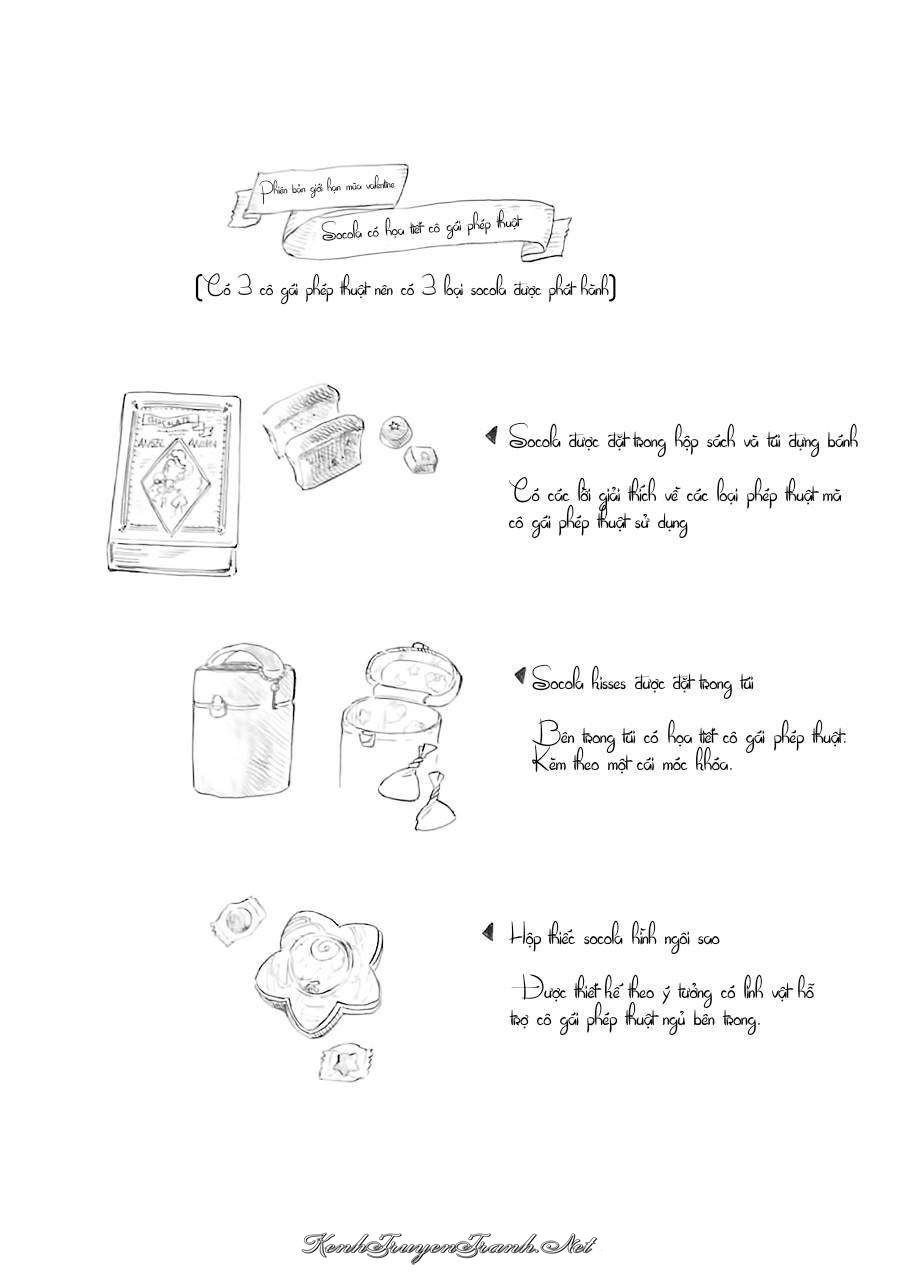 Phiên bản giới hạn mùa valentine
Socola có họa tiết cô gái phép thuật
(Có 3 cô gái phép thuật nên có 3 loại socola được phát hành)
CHOCOLATE
Socola được đặt trong hộp sách và túi đựng bánh
Có các lời giải thích về các loại phép thuật mà
cô gái phép thuật sử dụng
Socola kisses được đặt trong túi
Bên trong túi có họa tiết cô gái phép thuật.
Kèm theo một cái móc khóa.
Hộp thiếc socola hình ngôi sao
Được thiết kế theo ý tưởng có linh vật hỗ
trợ cô gái phép thuật ngủ bên trong.
KenhTruyenTranh.Net